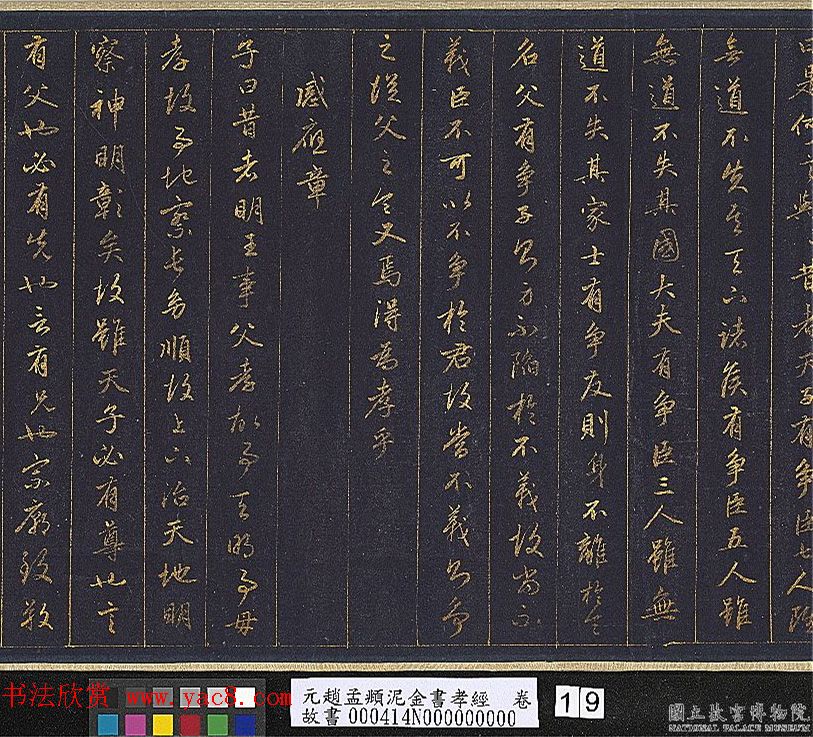 曰是何言與々昔者天子有爭臣七人雖
無道不失其天下諸侯有爭臣五人雖
無道不失其國大夫有爭臣三人雖無
道不失其家士有爭友則身不離於令
名父有爭子則身不陷於不義故當不
義臣不可以不爭於君故當不義則爭
之從父之令又焉得為孝乎
感應章
子曰昔者明王事父孝故事天明事母
孝故事地察長幼順故上下治天地明
察神明彰矣故雖天子必有尊也言
有父也必有先也言有兄也宗廟致敬
书法欣赏 www.yac8.com
元趙孟頫泥金書孝經 卷
故書000414N000000000
19
國立故宮博物院
NATIONAL PALACE MUSEUM